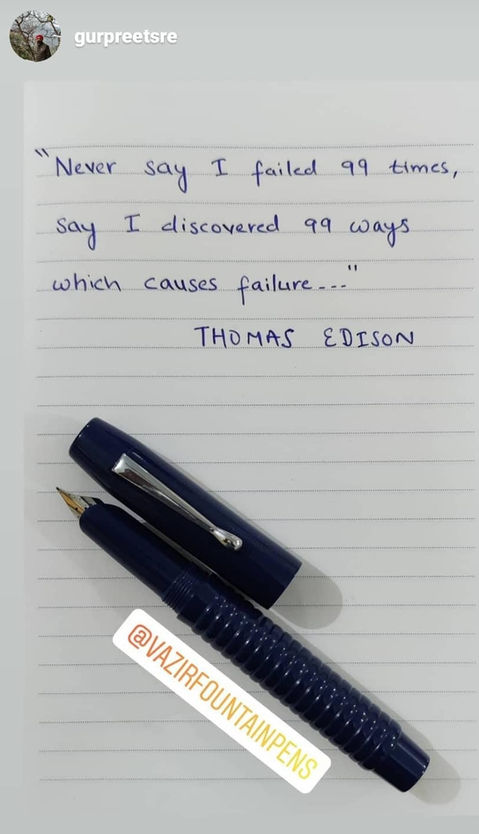 gurpreetsre
"Never say I failed 99 times,
say I discovered 99 ways
which causes failure---"
THOMAS EDISON
@VAZIRFOUNTAINPENS